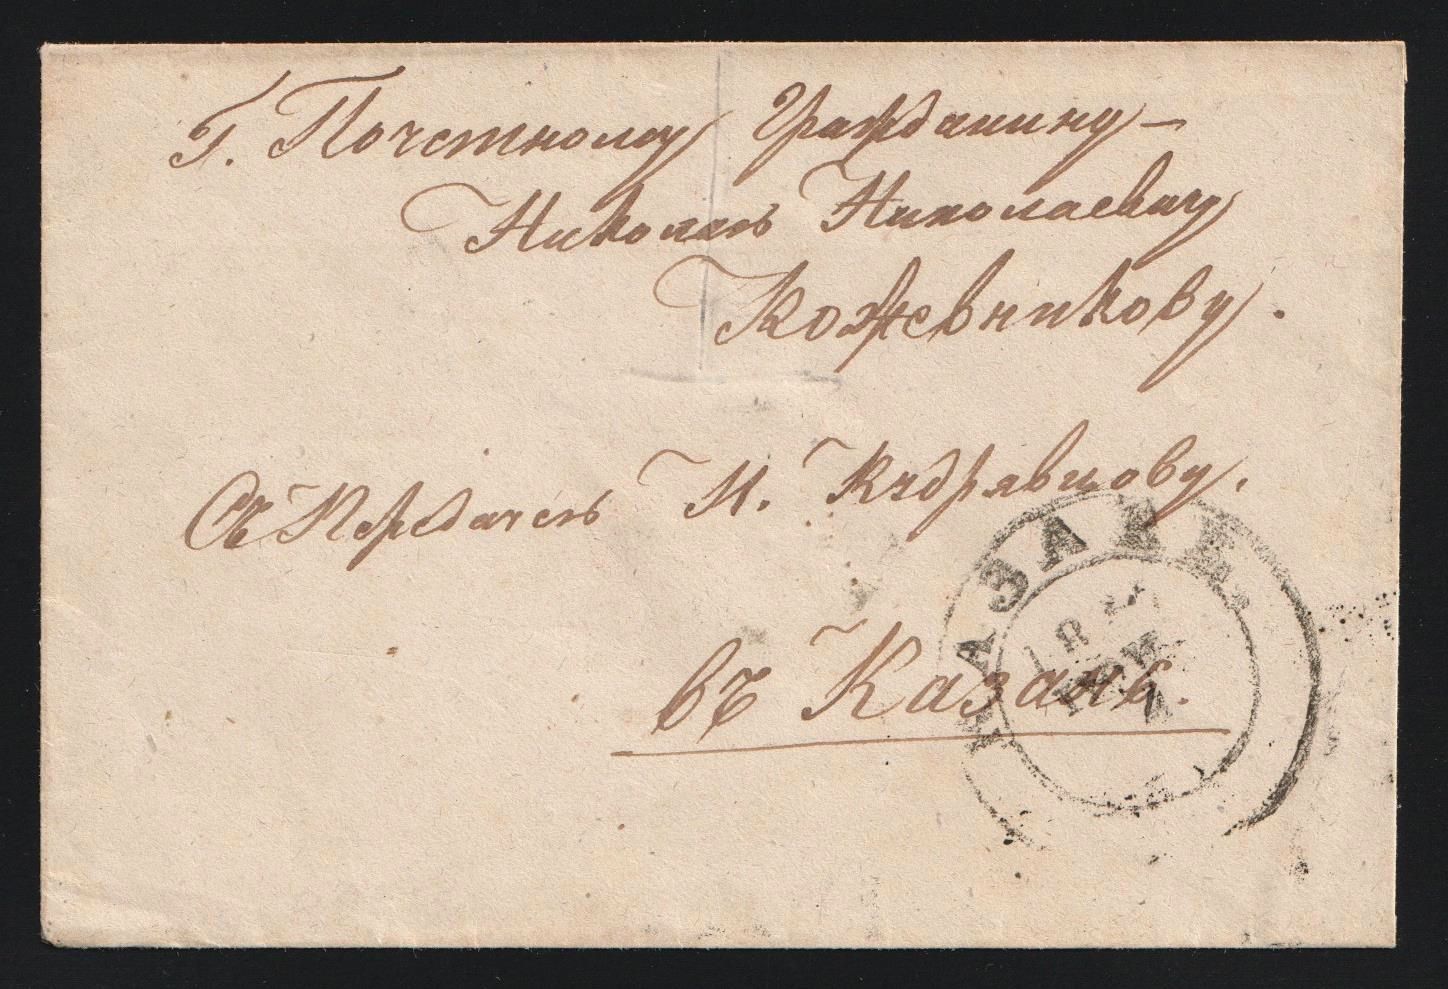 Г. Почетному Гражданину —
Николаю Николаевичу
Кожевникову.
Съ Передачею Н. Кудрявцову.
въ Казанѣ.
КАЗАНЬ
18